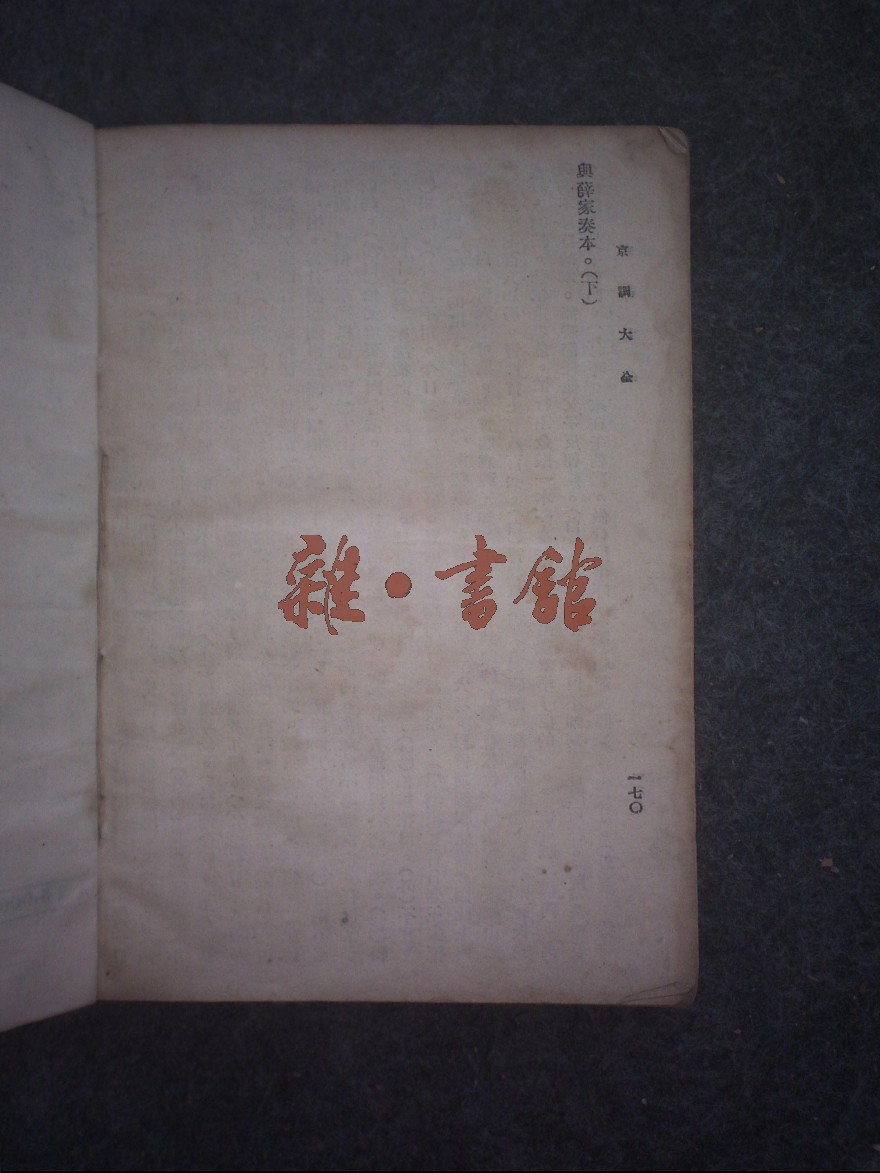 京調大全
與薛家奏本。(下)
一七〇
雜•書館